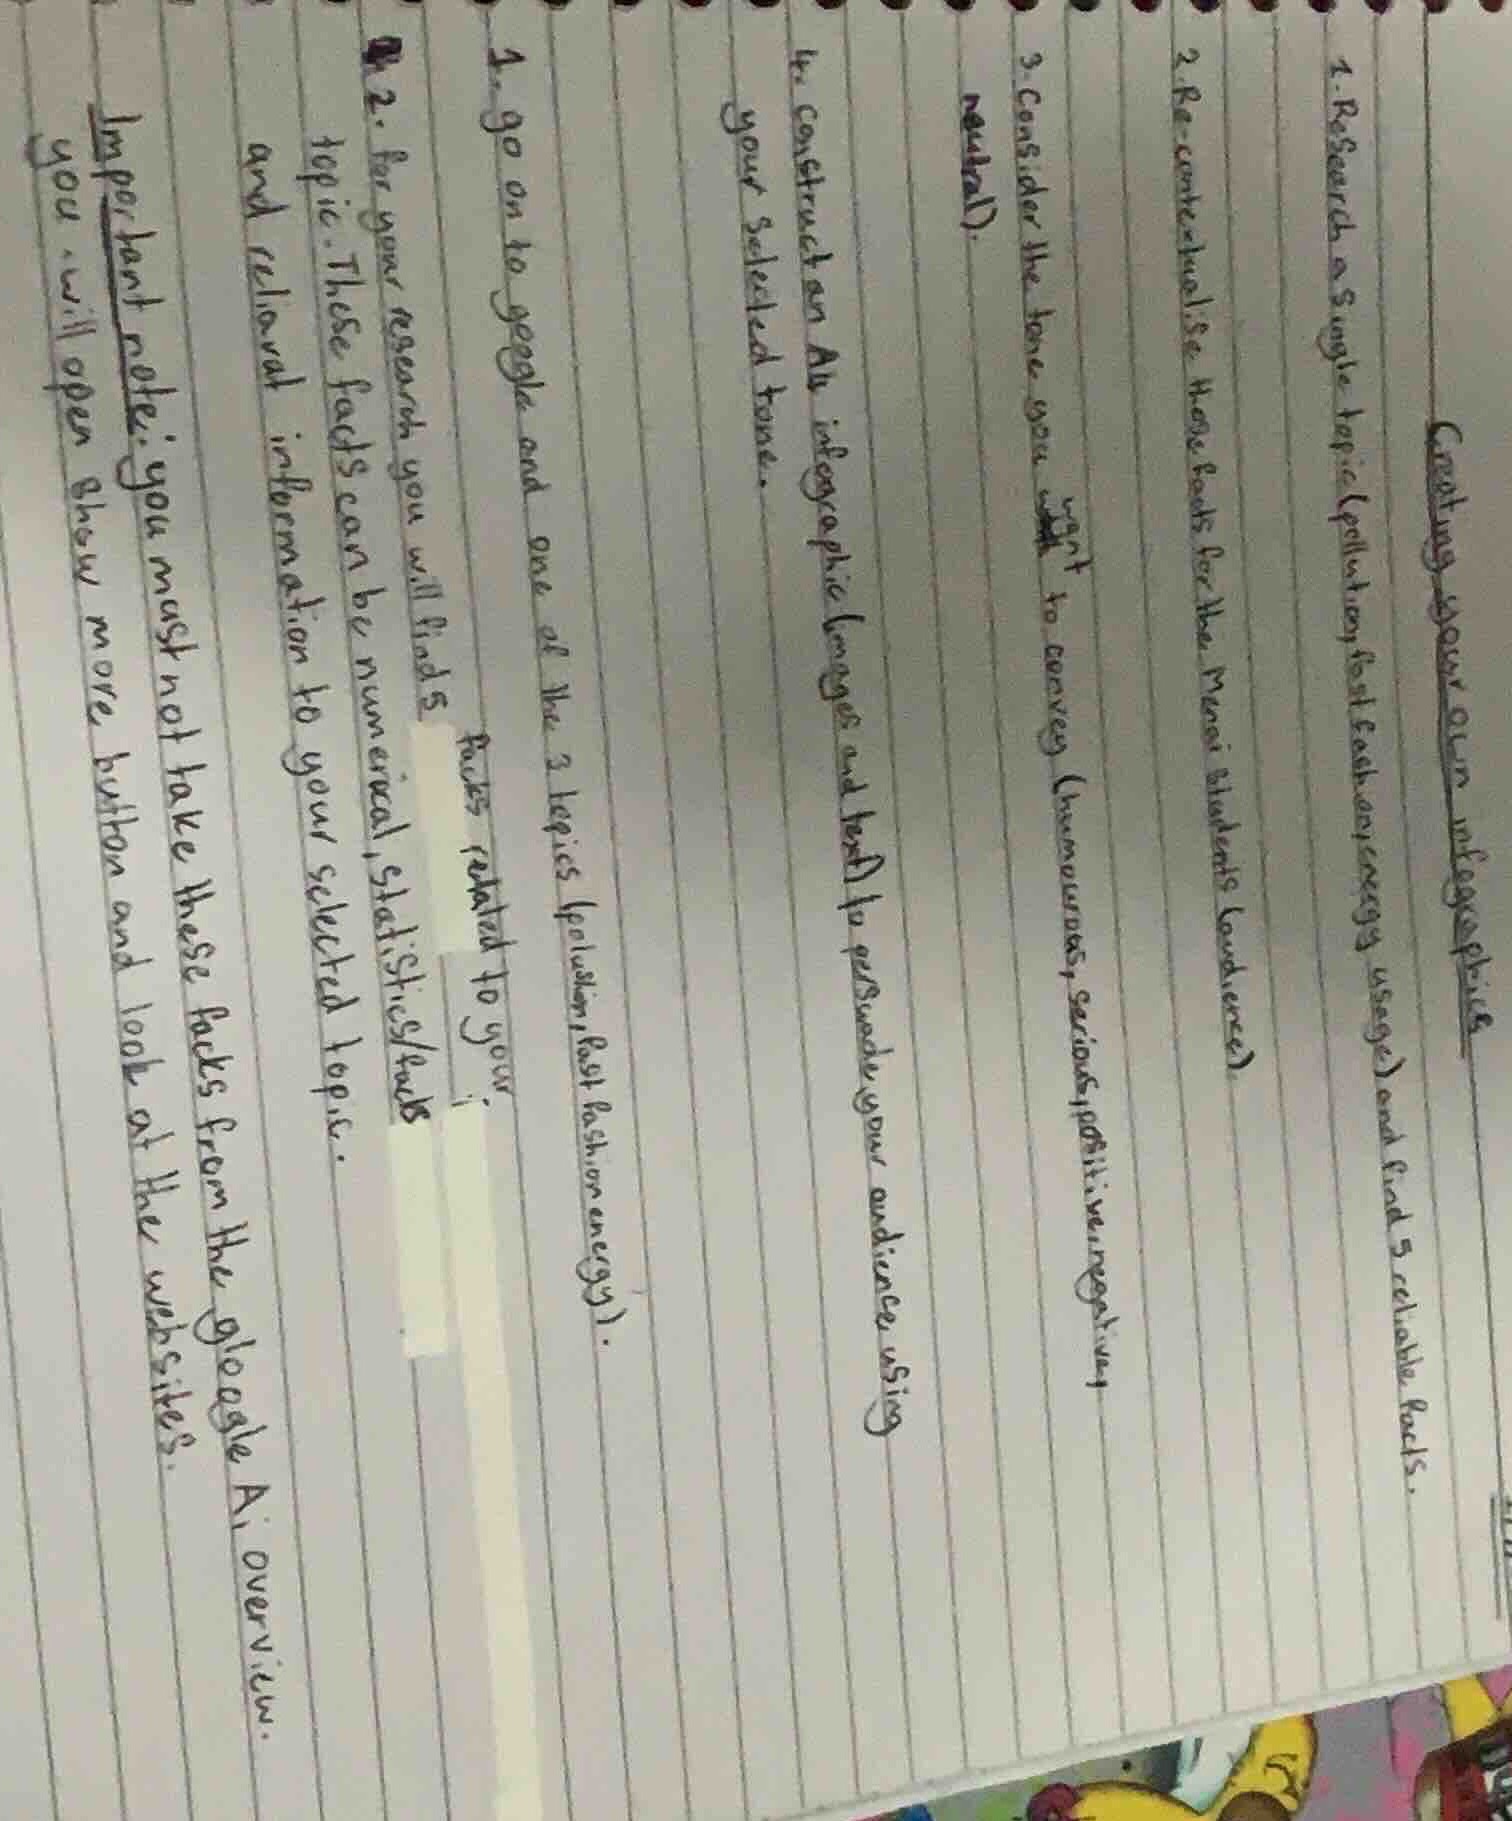 Creating your own infographics
1. Research a single topic (pollution, fast fashion, energy usage) and find 5 reliable facts.
2. Re-contextualise those facts for the Menai students (audience).
3. Consider the tone you want to convey (humourous, serious, positive, negative,
neutral).
4. construct an A4 infographic (images and text) to persuade your audience using
your selected tone.
1. go on to google and one of the 3 topics (polution, fast fashion energy).
2. for your research you will find 5 facks related to your
topic. These facts can be numerical, statistics/facts
and reliaval information to your selected topic.
Important note: you must not take these facks from the gloogle Ai overview.
you will open show more button and look at the websites.